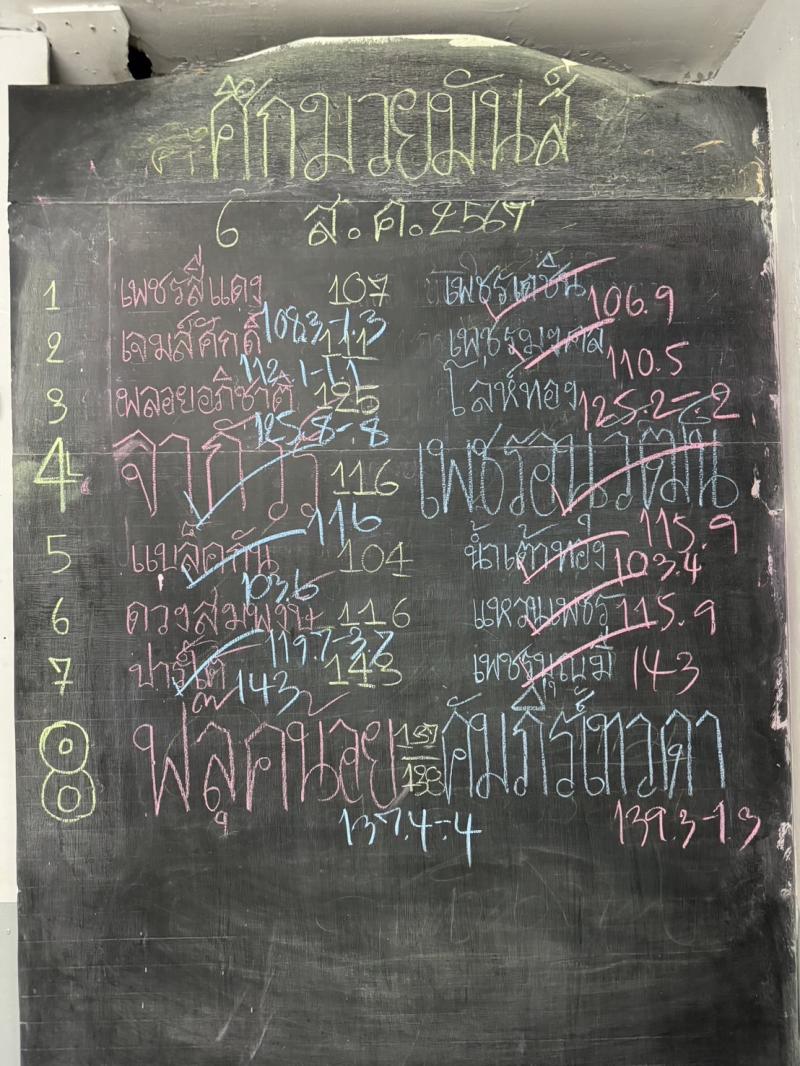 ศึกมวยมันส์
6 ส.ค. 2567
1 เพชรสี่แดง 107 เพชรเตชิน 106.9
108.3-1.3
2 เจมส์ศักดิ์ 111 เพชรมงคล 110.5
112.1-1.1
3 พลอยอภิชาติ 125 โลห์ทอง 125.2-.2
125.8-.8
4 จากัวร์ 116 เพชรอนุวัฒน์
116 115.9
5 แบล็คกัน 104 น้ำเต้าทอง 103.4
103.6
6 ดวงสมพงษ์ 116 แหวนเพชร 115.9
119.7-3.7
7 ปาร์ตี้ 143 เพชรภูมี 143
143
8 ฟลุคน้อย 137 138 คัมภีร์เทวดา
137.4-.4 139.3-1.3